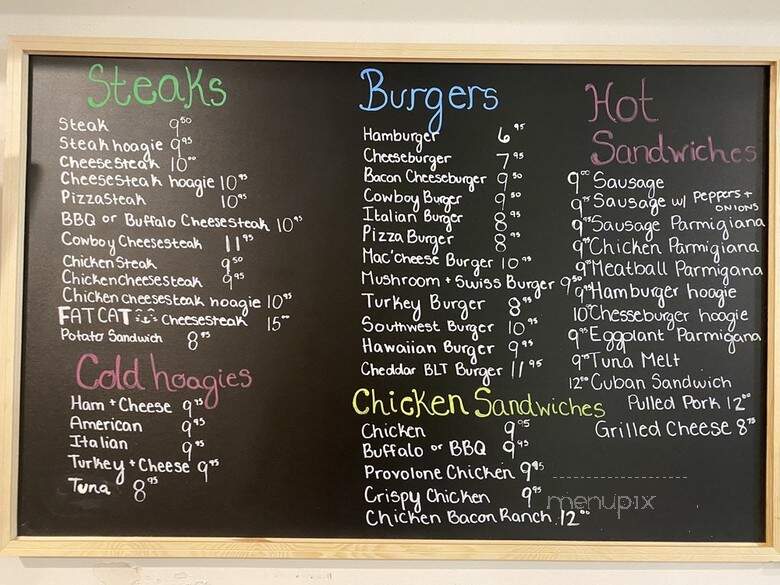 Steaks
Steak 9⁵⁰
Steak hoagie 9⁹⁵
Cheesesteak 10⁰⁰
Cheesesteak hoagie 10⁹⁵
Pizzasteak 10⁹⁵
BBQ or Buffalo Cheesesteak 10⁹⁵
Cowboy Cheesesteak 11⁹⁵
Chicken Steak 9⁵⁰
Chickencheesesteak 9⁹⁵
Chicken cheesesteak hoagie 10⁹⁵
FATCAT Cheesesteak 15⁰⁰
Potato Sandwich 8⁹⁵
Cold hoagies
Ham + Cheese 9⁹⁵
American 9⁹⁵
Italian 9⁹⁵
Turkey + Cheese 9⁹⁵
Tuna 8⁹⁵
Burgers
Hamburger 6⁹⁵
Cheeseburger 7⁹⁵
Bacon Cheeseburger 9⁵⁰
Cowboy Burger 9⁵⁰
Italian Burger 8⁹⁵
Pizza Burger 8⁹⁵
Mac'cheese Burger 10⁹⁵
Mushroom + Swiss Burger 9⁵⁰
Turkey Burger 8⁹⁵
Southwest Burger 10⁹⁵
Hawaiian Burger 9⁹⁵
Cheddar BLT Burger 11⁹⁵
Chicken Sandwiches
Chicken 9⁹⁵
Buffalo or BBQ 9⁹⁵
Provolone Chicken 9⁹⁵
Crispy Chicken 9⁹⁵
Chicken Bacon Ranch 12⁰⁰
Hot
Sandwiches
9⁰⁰ Sausage
9⁹⁵ Sausage w/ Peppers +
onions
9⁹⁵ Sausage Parmigiana
9⁹⁵ Chicken Parmigiana
9⁹⁵ Meatball Parmigana
9⁹⁵ Hamburger hoagie
10⁹⁵ Chesseburger hoagie
9⁹⁵ Eggplant Parmigana
9⁹⁵ Tuna Melt
12⁰⁰ Cuban Sandwich
Pulled Pork 12⁰⁰
Grilled Cheese 8⁹⁵
menupix